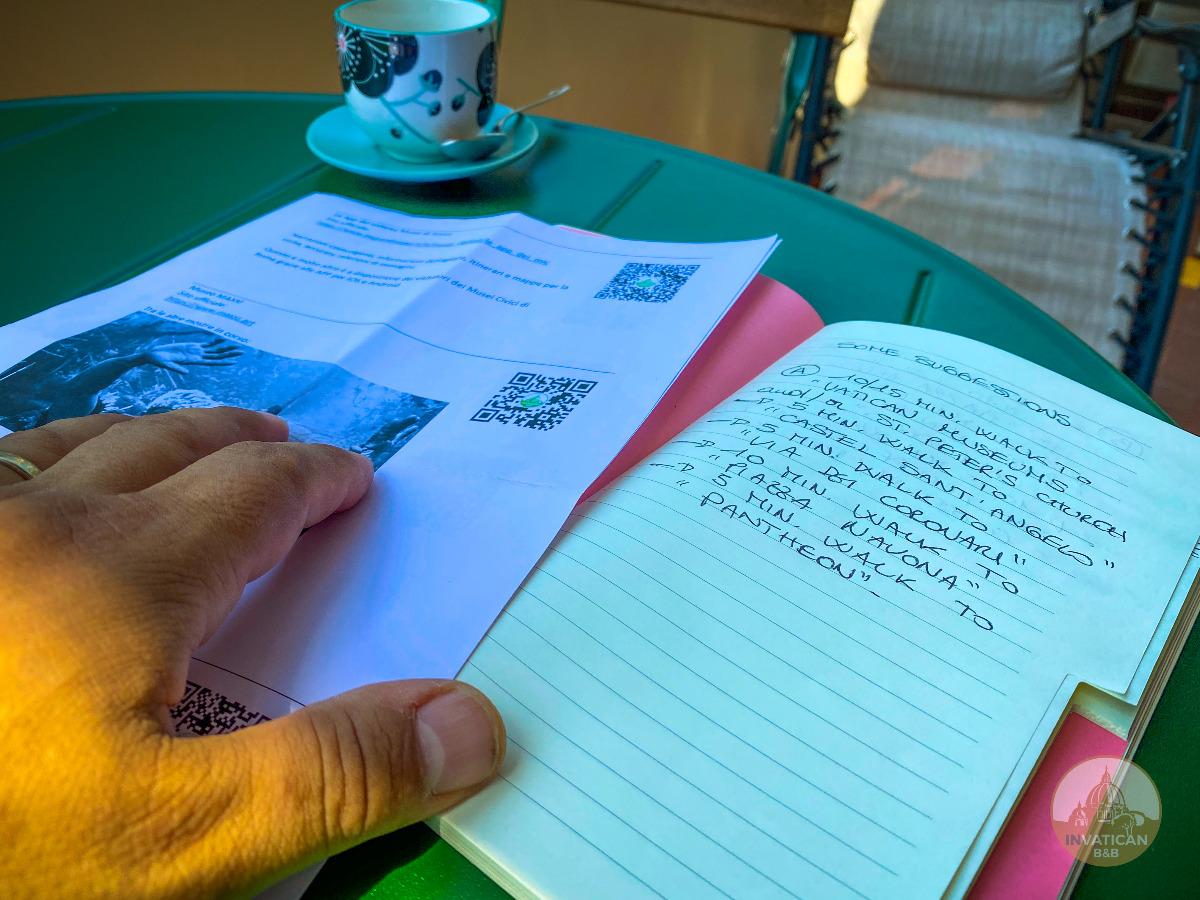 itinerari e mappe per la
dei Musei Civici di
Museo MAXXI
Sito ufficiale
Tra le altre mostre in corso:
SOME SUGGESTIONS
A 10/15 MIN. WALK TO
"VATICAN MUSEUMS"
and/or ST. PETER'S CHURCH
→ 5 MIN. WALK TO
"CASTEL SANT'ANGELO"
→ 5 MIN. WALK TO
"VIA DEI CORONARI"
→ 10 MIN. WALK TO
"PIAZZA NAVONA"
→ 5 MIN. WALK TO
"PANTHEON".
INVATICAN
B&B